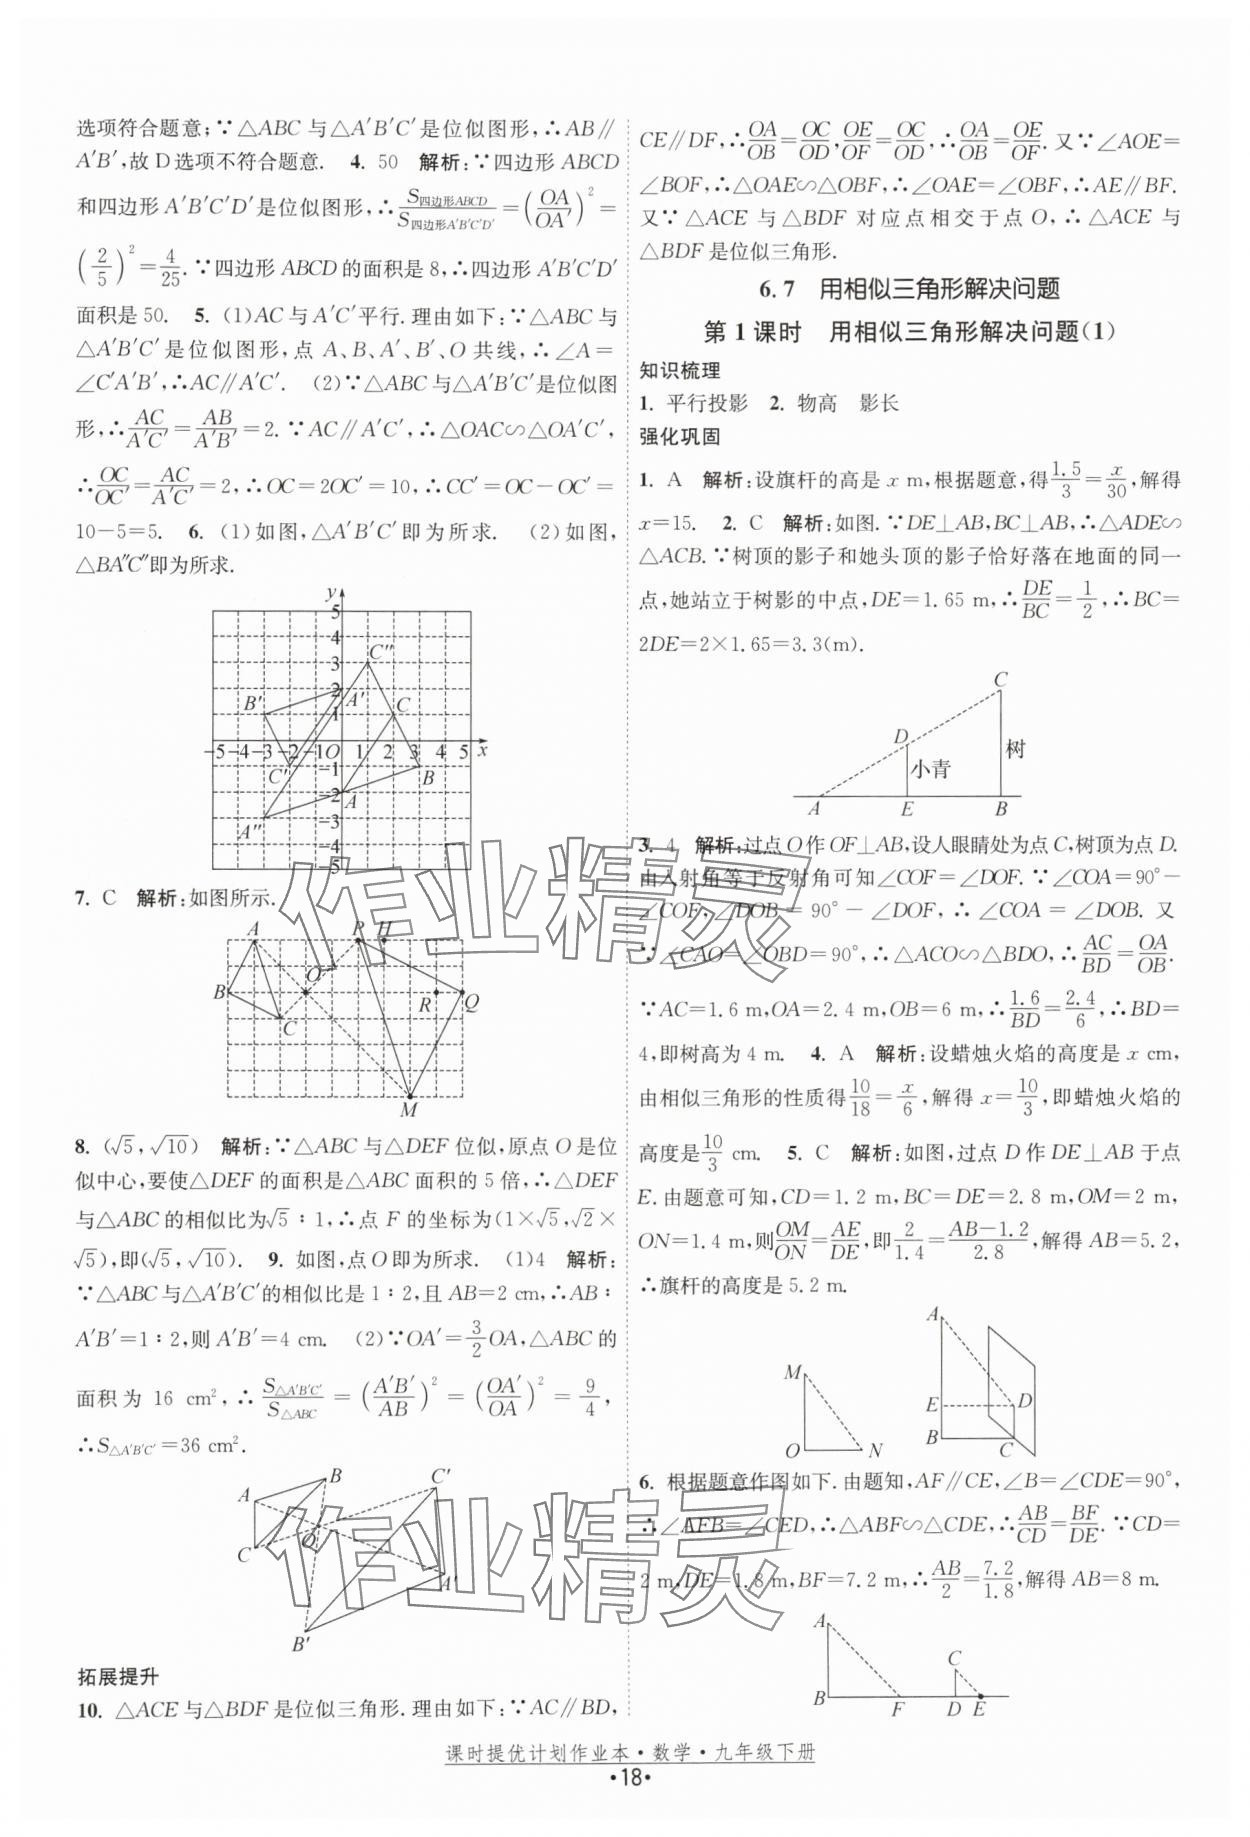 选项符合题意;∵△ABC与△A′B′C′是位似图形,∴AB∥
A′B′,故D选项不符合题意. 4. 50 解析:∵四边形ABCD
和四边形A′B′C′D′是位似图形,∴S四边形ABCD/S四边形A′B′C′D′=(OA/OA′)²=
(2/5)²=4/25.∵四边形ABCD的面积是8,∴四边形A′B′C′D′
面积是50. 5. (1)AC与A′C′平行.理由如下:∵△ABC与
△A′B′C′是位似图形,点A、B、A′、B′、O共线,∴∠A=
∠C′A′B′,∴AC∥A′C′. (2)∵△ABC与△A′B′C′是位似图
形,∴AC/A′C′=AB/A′B′=2.∵AC∥A′C′,∴△OAC∽△OA′C′,
∴OC/OC′=AC/A′C′=2,∴OC=2OC′=10,∴CC′=OC-OC′=
10-5=5. 6. (1)如图,△A′B′C′即为所求. (2)如图,
△BA″C″即为所求.
y
5
4
3
2
1
C″
B′
A′
C
-5 -4 -3 -2 -1 O 1 2 3 4 5 x
C′
-1
B
-2
A
A″
-3
-4
-5
7. C 解析:如图所示.
A P H
O
B R Q
C
M
8. (√5,√10) 解析:∵△ABC与△DEF位似,原点O是位
似中心,要使△DEF的面积是△ABC面积的5倍,∴△DEF
与△ABC的相似比为√5∶1,∴点F的坐标为(1×√5,√2×
√5),即(√5,√10). 9. 如图,点O即为所求. (1)4 解析:
∵△ABC与△A′B′C′的相似比是1∶2,且AB=2 cm,∴AB∶
A′B′=1∶2,则A′B′=4 cm. (2)∵OA′=3/2OA,△ABC的
面积为16 cm²,∴S△A′B′C′/S△ABC=(A′B′/AB)²=(OA′/OA)²=9/4,
∴S△A′B′C′=36 cm².
B C′
A
O
C
A′
B′
拓展提升
10. △ACE与△BDF是位似三角形.理由如下:∵AC∥BD,
CE∥DF,∴OA/OB=OC/OD,OE/OF=OC/OD,∴OA/OB=OE/OF.又∵∠AOE=
∠BOF,∴△OAE∽△OBF,∴∠OAE=∠OBF,∴AE∥BF.
又∵△ACE与△BDF对应点相交于点O,∴△ACE与
△BDF是位似三角形.
6.7 用相似三角形解决问题
第1课时 用相似三角形解决问题(1)
知识梳理
1. 平行投影 2. 物高 影长
强化巩固
1. A 解析:设旗杆的高是x m,根据题意,得1.5/3=x/30,解得
x=15. 2. C 解析:如图.∵DE⊥AB,BC⊥AB,∴△ADE∽
△ACB.∵树顶的影子和她头顶的影子恰好落在地面的同一
点,她站立于树影的中点,DE=1.65 m,∴DE/BC=1/2,∴BC=
2DE=2×1.65=3.3(m).
C
D
小青
树
A E B
3. 4 解析:过点O作OF⊥AB,设人眼睛处为点C,树顶为点D.
由入射角等于反射角可知∠COF=∠DOF.∵∠COA=90°-
∠COF,∠DOB=90°-∠DOF,∴∠COA=∠DOB.又
∵∠CAO=∠OBD=90°,∴△ACO∽△BDO,∴AC/BD=OA/OB.
∵AC=1.6 m,OA=2.4 m,OB=6 m,∴1.6/BD=2.4/6,∴BD=
4,即树高为4 m. 4. A 解析:设蜡烛火焰的高度是x cm,
由相似三角形的性质得10/18=x/6,解得x=10/3,即蜡烛火焰的
高度是10/3 cm. 5. C 解析:如图,过点D作DE⊥AB于点
E.由题意可知,CD=1.2 m,BC=DE=2.8 m,OM=2 m,
ON=1.4 m,则OM/ON=AE/DE,即2/1.4=AB-1.2/2.8,解得AB=5.2,
∴旗杆的高度是5.2 m.
A
M
E D
B C
O N
6. 根据题意作图如下.由题知,AF∥CE,∠B=∠CDE=90°,
∴∠AFB=∠CED,∴△ABF∽△CDE,∴AB/CD=BF/DE.∵CD=
2 m,DE=1.8 m,BF=7.2 m,∴AB/2=7.2/1.8,解得AB=8 m.
A
C
B F D E
课时提优计划作业本·数学·九年级下册
·18·
作业精灵
作业精灵